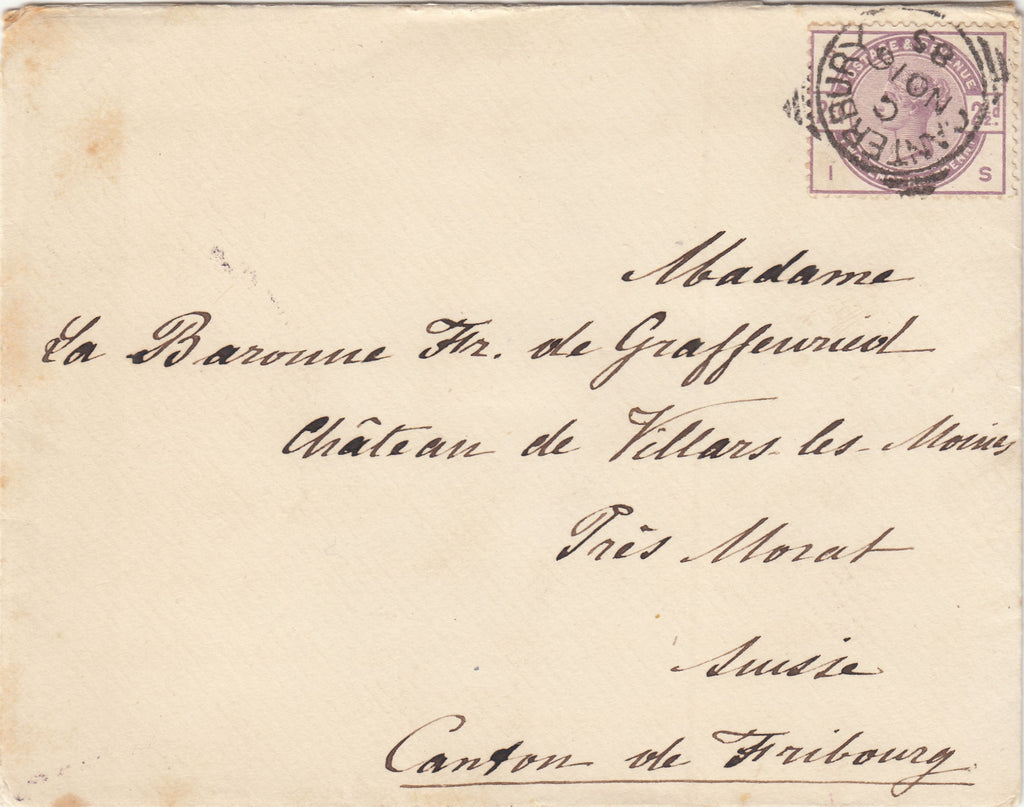 POSTAGE & REVENUE
2½d.
I S
CANTERBURY
G
NO 19
85
Madame
La Baronne Fr. de Graffenried
Château de Villars-les-Moines
Près Morat
Suisse
Canton de Fribourg